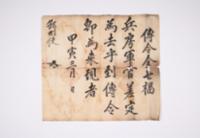 傳令金七福
兵房軍官差定
為去乎到傳令
卽為來現者
甲寅三月 日